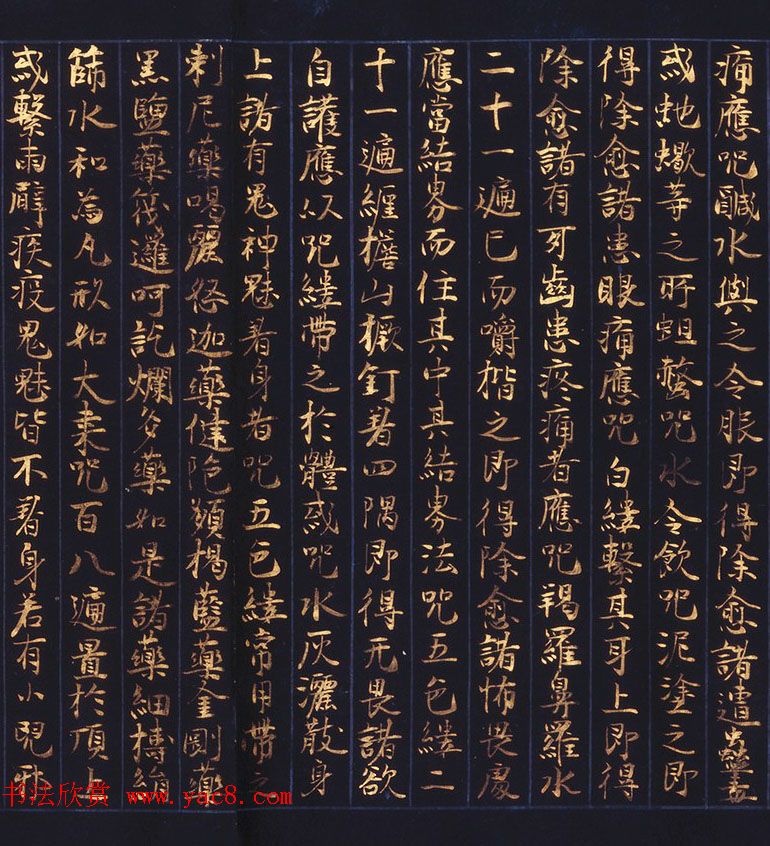 痛應呪鹹水與之令服即得除愈諸遭蠱毒
或虵蠍等之所蛆螫呪水令飲呪泥塗之即
得除愈諸患眼痛應呪白縷繫其耳上即得
除愈諸有牙齒患疼痛者應呪羯羅鼻羅水
二十一遍已而嚼揩之即得除愈諸怖畏處
應當結界而住其中其結界法呪五色縷二
十一遍纏檐山橛釘著四隅即得无畏諸欲
自護應以呪縷帶之於體或呪水灰灑散身
上諸有鬼神魅著身者呪五色縷常用帶之
剌尼藥喝麗怒迦藥健陁頞楬藍藥金剛藥
黑鹽藥筏邏呵訖爛多藥如是諸藥細擣絹
篩水和為丸形如大棗呪百八遍置於頂上
或繫兩臂疾疫鬼魅皆不著身若有小兒
书法欣赏 www.yac8.com